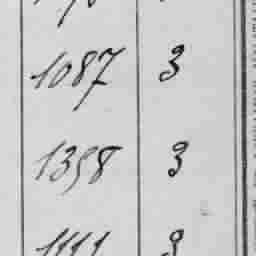 1087 3
1358 3
1111 3